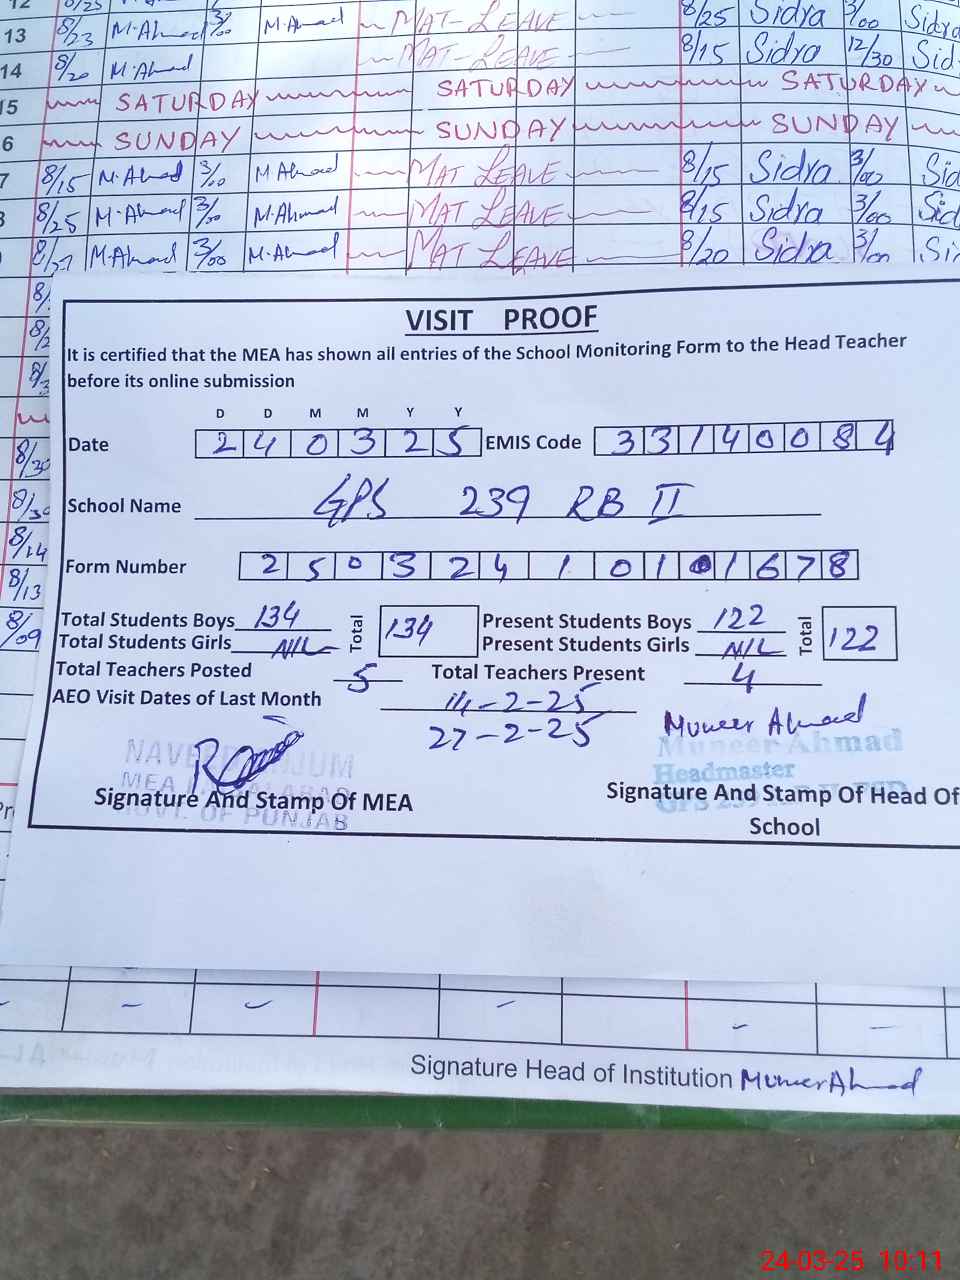 12 8/25
13 8/23 M.Ahmad 3/00 M.Ahmad MAT-LEAVE 8/25 Sidra 3/00 Sidra
14 8/20 M.Ahmad MAT-LEAVE 8/15 Sidra 12/30 Sid
15 SATURDAY SATURDAY SATURDAY
6 SUNDAY SUNDAY SUNDAY
7 8/15 M.Ahmad 3/00 M.Ahmad MAT LEAVE 8/15 Sidra 3/00 Sid
8 8/25 M.Ahmad 3/00 M.Ahmad MAT LEAVE 8/15 Sidra 3/00 Sid
8/27 M.Ahmad 3/00 M.Ahmad MAT LEAVE 8/20 Sidra 3/00 Si
VISIT PROOF
It is certified that the MEA has shown all entries of the School Monitoring Form to the Head Teacher
before its online submission
D D M M Y Y
Date 2 4 0 3 2 5 EMIS Code 3 3 1 4 0 0 8 4
School Name GPS 239 RB II
Form Number 2 5 0 3 2 4 1 0 1 0 1 6 7 8
Total Students Boys 134 Total 134 Present Students Boys 122 Total 122
Total Students Girls NIL Present Students Girls NIL
Total Teachers Posted 5 Total Teachers Present 4
AEO Visit Dates of Last Month 14-2-25
27-2-25 Muneer Ahmad
Muneer Ahmad
Headmaster
MEA
Signature And Stamp Of MEA Signature And Stamp Of Head Of
School
GOVT. OF PUNJAB
8/30
8/14
8/13
8/09
Signature Head of Institution Muneer Ahmad
24-03-25 10:11